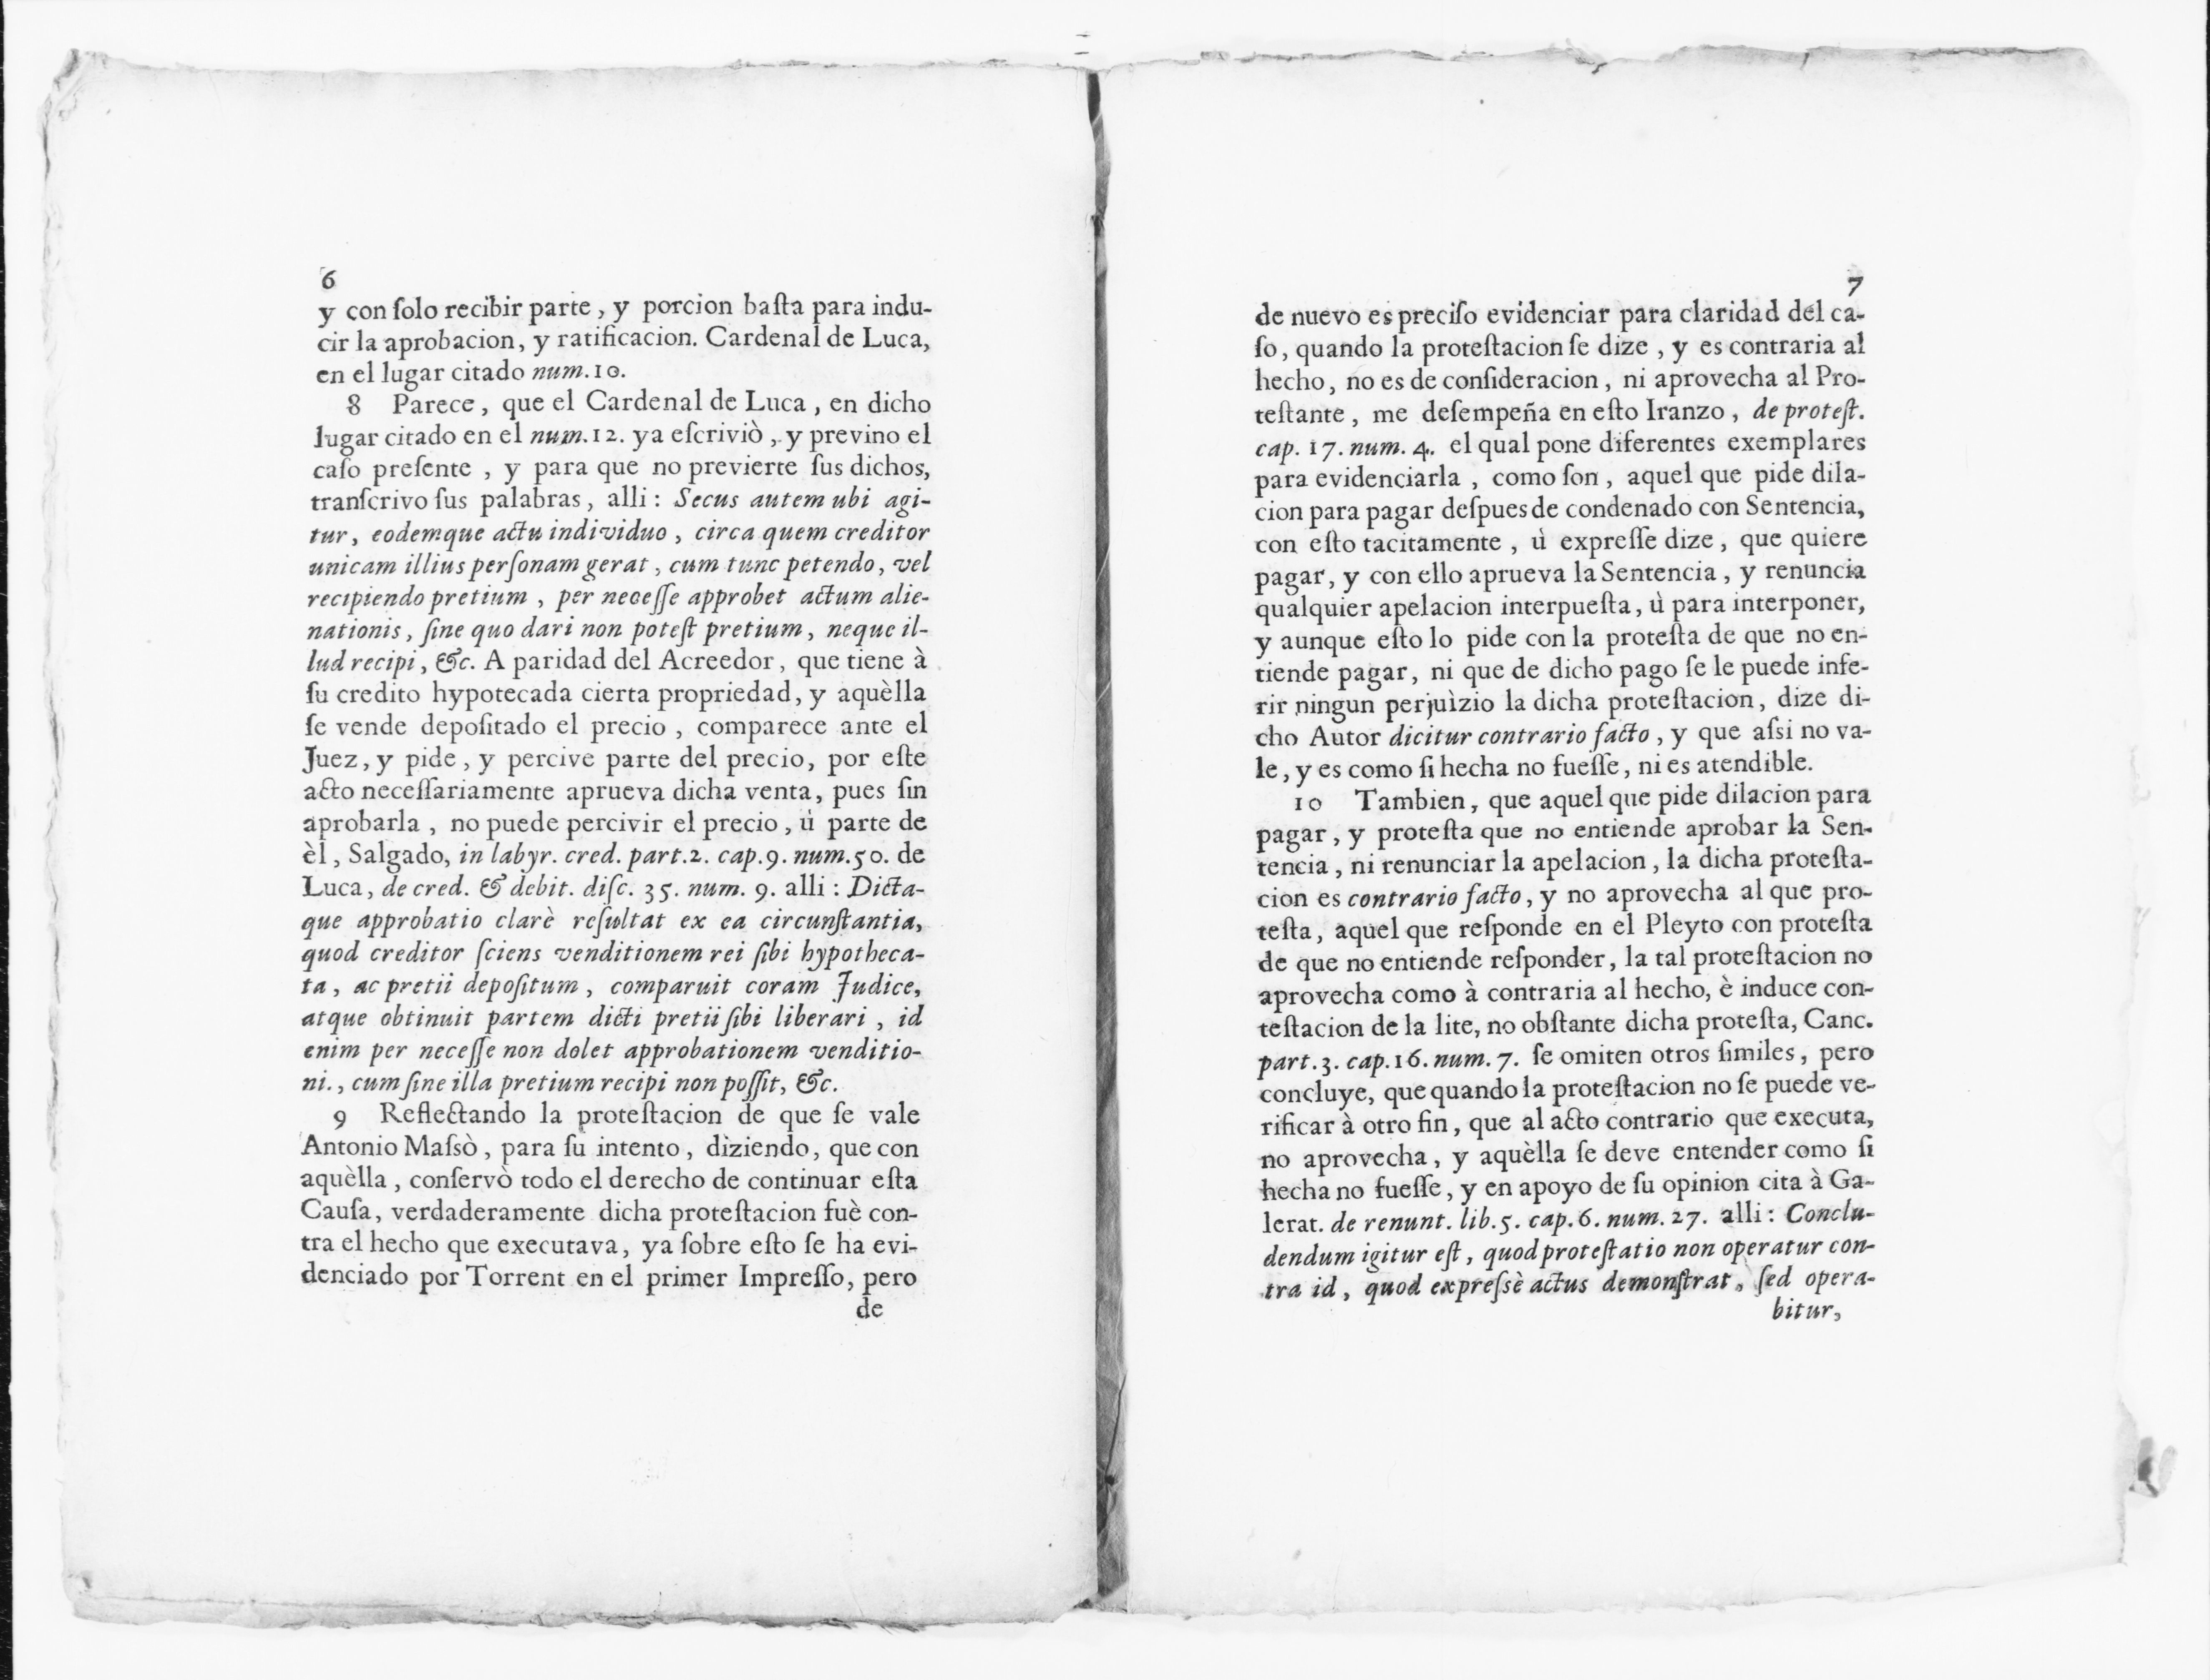 6
y con ſolo recibir parte, y porcion baſta para indu-
cir la aprobacion, y ratificacion. Cardenal de Luca,
en el lugar citado num. 10.
8 Parece, que el Cardenal de Luca, en dicho
lugar citado en el num. 12. ya eſcriviò, y previno el
caſo preſente, y para que no previerte ſus dichos,
tranſcrivo ſus palabras, alli: Secus autem ubi agi-
tur, eodemque actu individuo, circa quem creditor
unicam illius perſonam gerat, cum tunc petendo, vel
recipiendo pretium, per neceſſe approbet actum alie-
nationis, ſine quo dari non poteſt pretium, neque il-
lud recipi, &c. A paridad del Acreedor, que tiene à
ſu credito hypotecada cierta propriedad, y aquèlla
ſe vende depoſitado el precio, comparece ante el
Juez, y pide, y percive parte del precio, por eſte
acto neceſſariamente aprueva dicha venta, pues ſin
aprobarla, no puede percivir el precio, ù parte de
èl, Salgado, in labyr. cred. part. 2. cap. 9. num. 50. de
Luca, de cred. & debit. diſc. 35. num. 9. alli: Dicta-
que approbatio clarè reſultat ex ea circunſtantia,
quod creditor ſciens venditionem rei ſibi hypotheca-
ta, ac pretii depoſitum, comparuit coram Judice,
atque obtinuit partem dicti pretii ſibi liberari, id
enim per neceſſe non dolet approbationem venditio-
ni., cum ſine illa pretium recipi non poſſit, &c.
9 Reflectando la proteſtacion de que ſe vale
Antonio Maſsò, para ſu intento, diziendo, que con
aquèlla, conſervò todo el derecho de continuar eſta
Cauſa, verdaderamente dicha proteſtacion fuè con-
tra el hecho que executava, ya ſobre eſto ſe ha evi-
denciado por Torrent en el primer Impreſſo, pero
de
7
de nuevo es preciſo evidenciar para claridad del ca-
ſo, quando la proteſtacion ſe dize, y es contraria al
hecho, no es de conſideracion, ni aprovecha al Pro-
teſtante, me deſempeña en eſto Iranzo, de proteſt.
cap. 17. num. 4. el qual pone diferentes exemplares
para evidenciarla, como ſon, aquel que pide dila-
cion para pagar deſpues de condenado con Sentencia,
con eſto tacitamente, ù expreſſe dize, que quiere
pagar, y con ello aprueva la Sentencia, y renuncia
qualquier apelacion interpueſta, ù para interponer,
y aunque eſto lo pide con la proteſta de que no en-
tiende pagar, ni que de dicho pago ſe le puede infe-
rir ningun perjuìzio la dicha proteſtacion, dize di-
cho Autor dicitur contrario facto, y que aſsi no va-
le, y es como ſi hecha no fueſſe, ni es atendible.
10 Tambien, que aquel que pide dilacion para
pagar, y proteſta que no entiende aprobar la Sen-
tencia, ni renunciar la apelacion, la dicha proteſta-
cion es contrario facto, y no aprovecha al que pro-
teſta, aquel que reſponde en el Pleyto con proteſta
de que no entiende reſponder, la tal proteſtacion no
aprovecha como à contraria al hecho, è induce con-
teſtacion de la lite, no obſtante dicha proteſta, Canc.
part. 3. cap. 16. num. 7. ſe omiten otros ſimiles, pero
concluye, que quando la proteſtacion no ſe puede ve-
rificar à otro fin, que al acto contrario que executa,
no aprovecha, y aquèlla ſe deve entender como ſi
hecha no fueſſe, y en apoyo de ſu opinion cita à Ga-
lerat. de renunt. lib. 5. cap. 6. num. 27. alli: Conclu-
dendum igitur eſt, quod proteſtatio non operatur con-
tra id, quod expreſsè actus demonſtrat, ſed opera-
bitur,